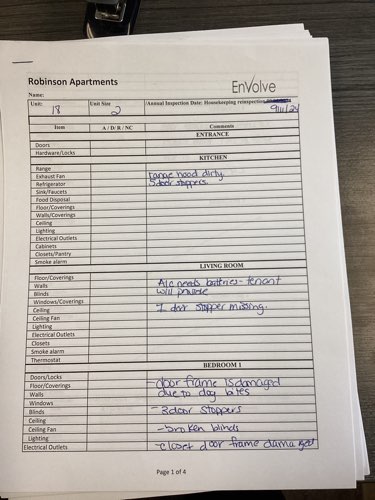 Robinson Apartments
EnVolve
Name:
Unit: 18 Unit Size 2 /Annual Inspection Date: Housekeeping reinspection 9/11/24
Item A / D / R / NC Comments
ENTRANCE
Doors
Hardware/Locks
KITCHEN
Range
Exhaust Fan range hood dirty.
Refrigerator 5 door stoppers.
Sink/Faucets
Food Disposal
Floor/Coverings
Walls/Coverings
Ceiling
Lighting
Electrical Outlets
Cabinets
Closets/Pantry
Smoke alarm
LIVING ROOM
Floor/Coverings
Walls A/c needs batteries - tenant
Blinds will provide
Windows/Coverings
Ceiling 1 door stopper missing.
Ceiling Fan
Lighting
Electrical Outlets
Closets
Smoke alarm
Thermostat
BEDROOM 1
Doors/Locks
Floor/Coverings - door frame is damaged
Walls due to dog bites
Windows
Blinds - 3 door stoppers
Ceiling
Ceiling Fan - broken blinds
Lighting
Electrical Outlets - closet door frame damaged
Page 1 of 4